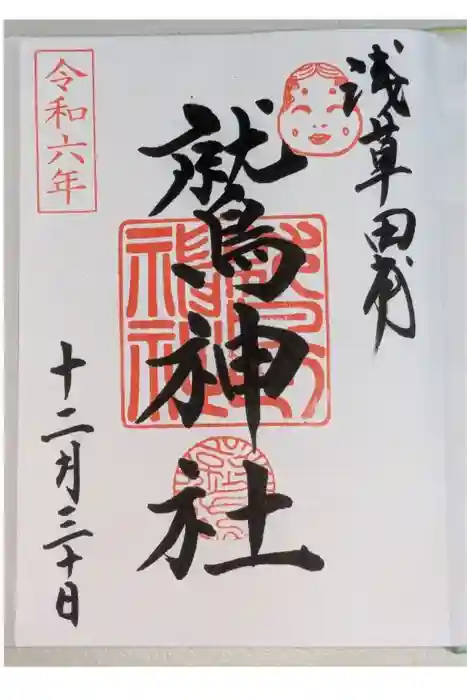 浅草田甫
鷲神社
令和六年
十二月三十日